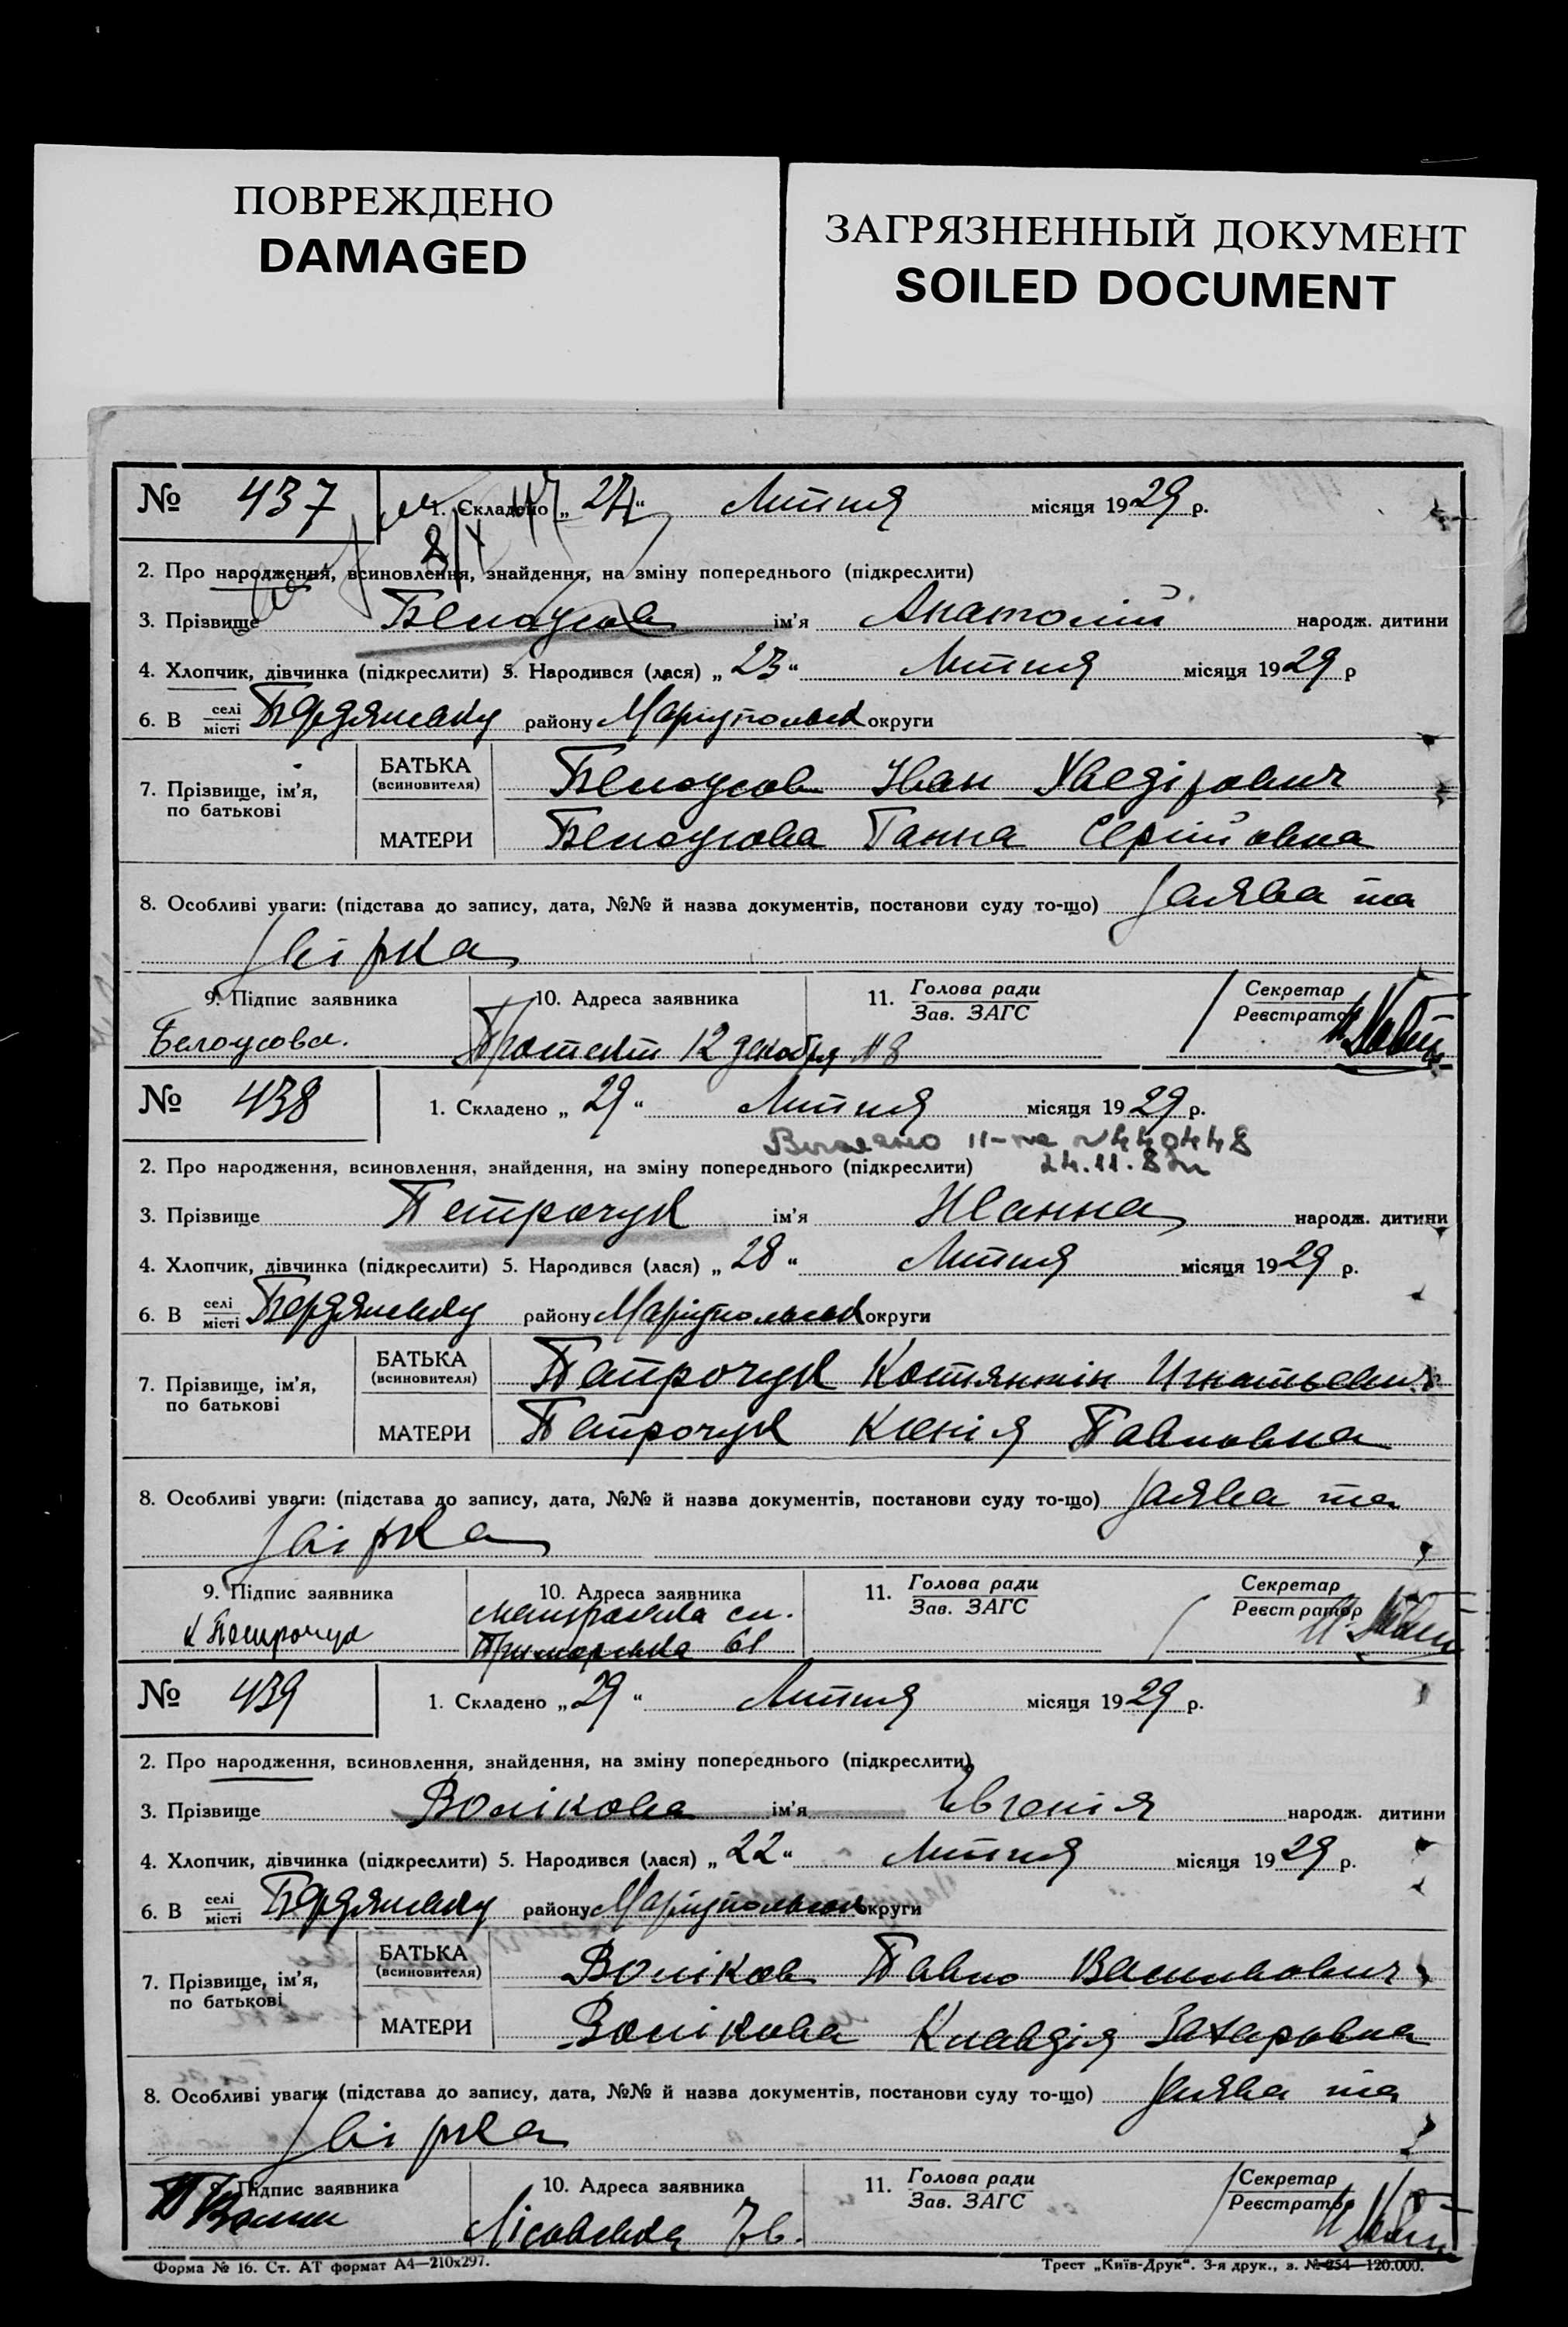 ПОВРЕЖДЕНО
DAMAGED
ЗАГРЯЗНЕННЫЙ ДОКУМЕНТ
SOILED DOCUMENT
№ 437
1. Складено „ “ Липня місяця 1929 р.
2. Про народження, всиновлення, знайдення, на зміну попереднього (підкреслити)
3. Прізвище Белоусов ім'я Анатолій народж. дитини
4. Хлопчик, дівчинка (підкреслити) 5. Народився (лася) „ 23 “ Липня місяця 1929 р
6. В селі місті Бердянську району Маріупольськ округи
7. Прізвище, ім'я, по батькові
БАТЬКА (всиновителя) Белоусов Іван
МАТЕРИ Белоусова Ганна Сергіївна
8. Особливі уваги: (підстава до запису, дата, №№ й назва документів, постанови суду то-що) Заява та
звірка
9. Підпис заявника 10. Адреса заявника 11. Голова ради Зав. ЗАГС Секретар Реєстратор
Белоусова. Проспект 12 декабря № 8
№ 438
1. Складено „ 29 “ Липня місяця 1929 р.
24.11.
2. Про народження, всиновлення, знайдення, на зміну попереднього (підкреслити)
3. Прізвище Петрочук ім'я Жанна народж. дитини
4. Хлопчик, дівчинка (підкреслити) 5. Народився (лася) „ 28 “ Липня місяця 1929 р.
6. В селі місті Бердянську району Маріупольськ округи
7. Прізвище, ім'я, по батькові
БАТЬКА (всиновителя) Петрочук Костянтін Игнатьевич
МАТЕРИ Петрочук Ксенія Павловна
8. Особливі уваги: (підстава до запису, дата, №№ й назва документів, постанови суду то-що) Заява та
звірка
9. Підпис заявника 10. Адреса заявника 11. Голова ради Зав. ЗАГС Секретар Реєстратор
К Петрочук Приморська 61
№ 439
1. Складено „ 29 “ Липня місяця 1929 р.
2. Про народження, всиновлення, знайдення, на зміну попереднього (підкреслити)
3. Прізвище Волікова ім'я Евгенія народж. дитини
4. Хлопчик, дівчинка (підкреслити) 5. Народився (лася) „ 22 “ Липня місяця 1929 р.
6. В селі місті Бердянську району Маріупольськ округи
7. Прізвище, ім'я, по батькові
БАТЬКА (всиновителя) Воліков Павло Васильович
МАТЕРИ Волікова Клавдія Захаровна
8. Особливі уваги: (підстава до запису, дата, №№ й назва документів, постанови суду то-що) Заява та
звірка
9. Підпис заявника 10. Адреса заявника 11. Голова ради Зав. ЗАГС Секретар Реєстратор
Лісовська
Форма № 16. Ст. АТ формат А4—210х297.
Трест „Київ-Друк“. 3-я друк., з. № 254—120.000.